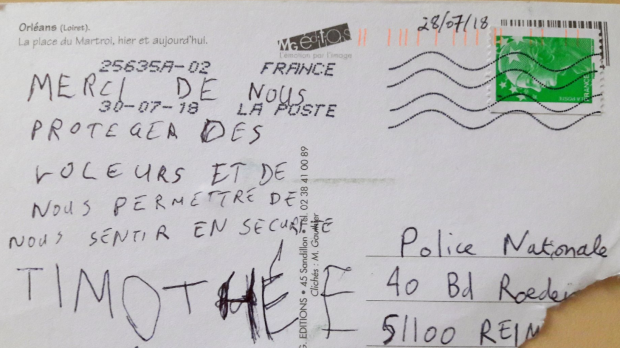 Orléans (Loiret).
La place du Martroi, hier et aujourd'hui.
28/07/18
25635A-02 FRANCE
30-07-18 LA POSTE
MERCI DE NOUS
PROTEGER DES
VOLEURS ET DE
NOUS PERMETTRE DE
NOUS SENTIR EN SECURITE
TIMOTHÉE
EDITIONS • 45 Sandillon • Tél. 02 38 41 00 89
Clichés : M.
Police Nationale
40 Bd
51100